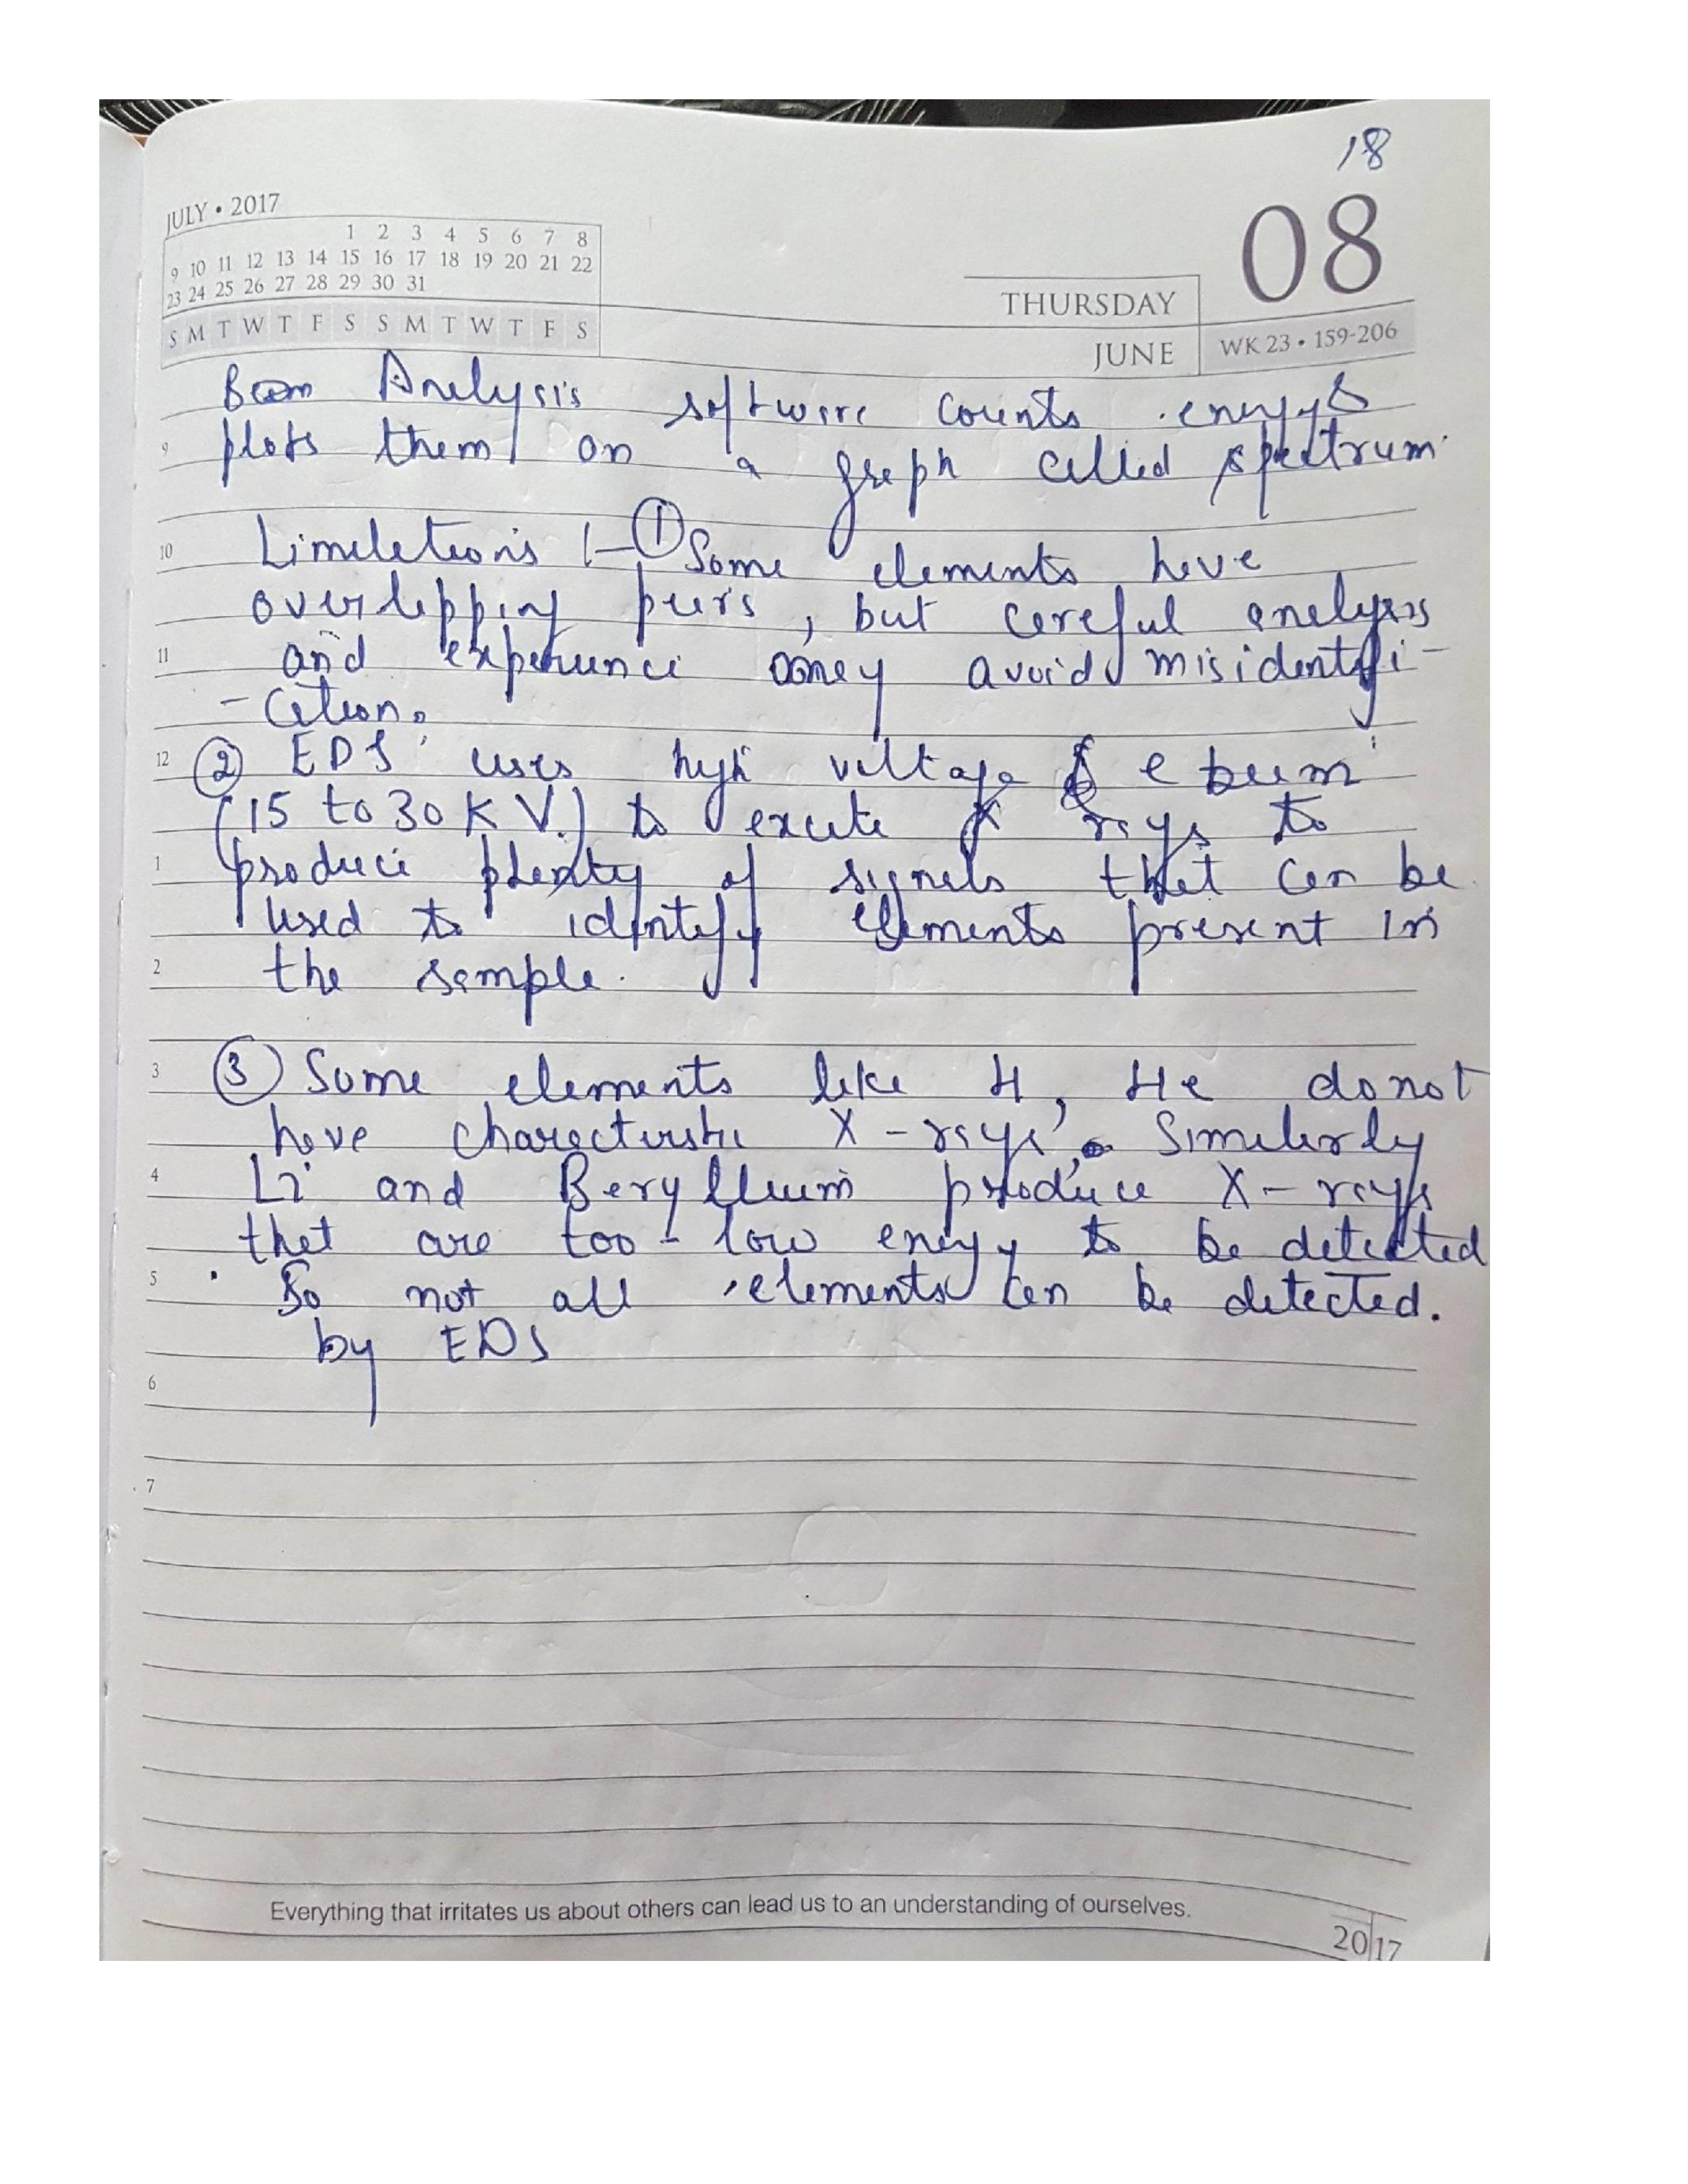 18
JULY • 2017
1 2 3 4 5 6 7 8
9 10 11 12 13 14 15 16 17 18 19 20 21 22
23 24 25 26 27 28 29 30 31
S M T W T F S S M T W T F S
08
THURSDAY
JUNE
WK 23 • 159-206
Analysis software counts energy &
9 plots them on a graph called spectrum.
10 Limitations :- ① Some elements have
overlapping , but careful analysis
11 and experience may avoid misidentifi-
-cation.
12 ② EDS uses high voltage e beam
(15 to 30 KV.) to excite X rays to
1 produce plenty of signals that can be
used to identify elements present in
2 the sample.
3 ③ Some elements like H, He do not
have characteristic X-rays. Similarly
4 Li and Beryllium produce X-rays
that are too-low energy to be detected
5 So not all elements can be detected.
by EDS
6
7
Everything that irritates us about others can lead us to an understanding of ourselves.
2017